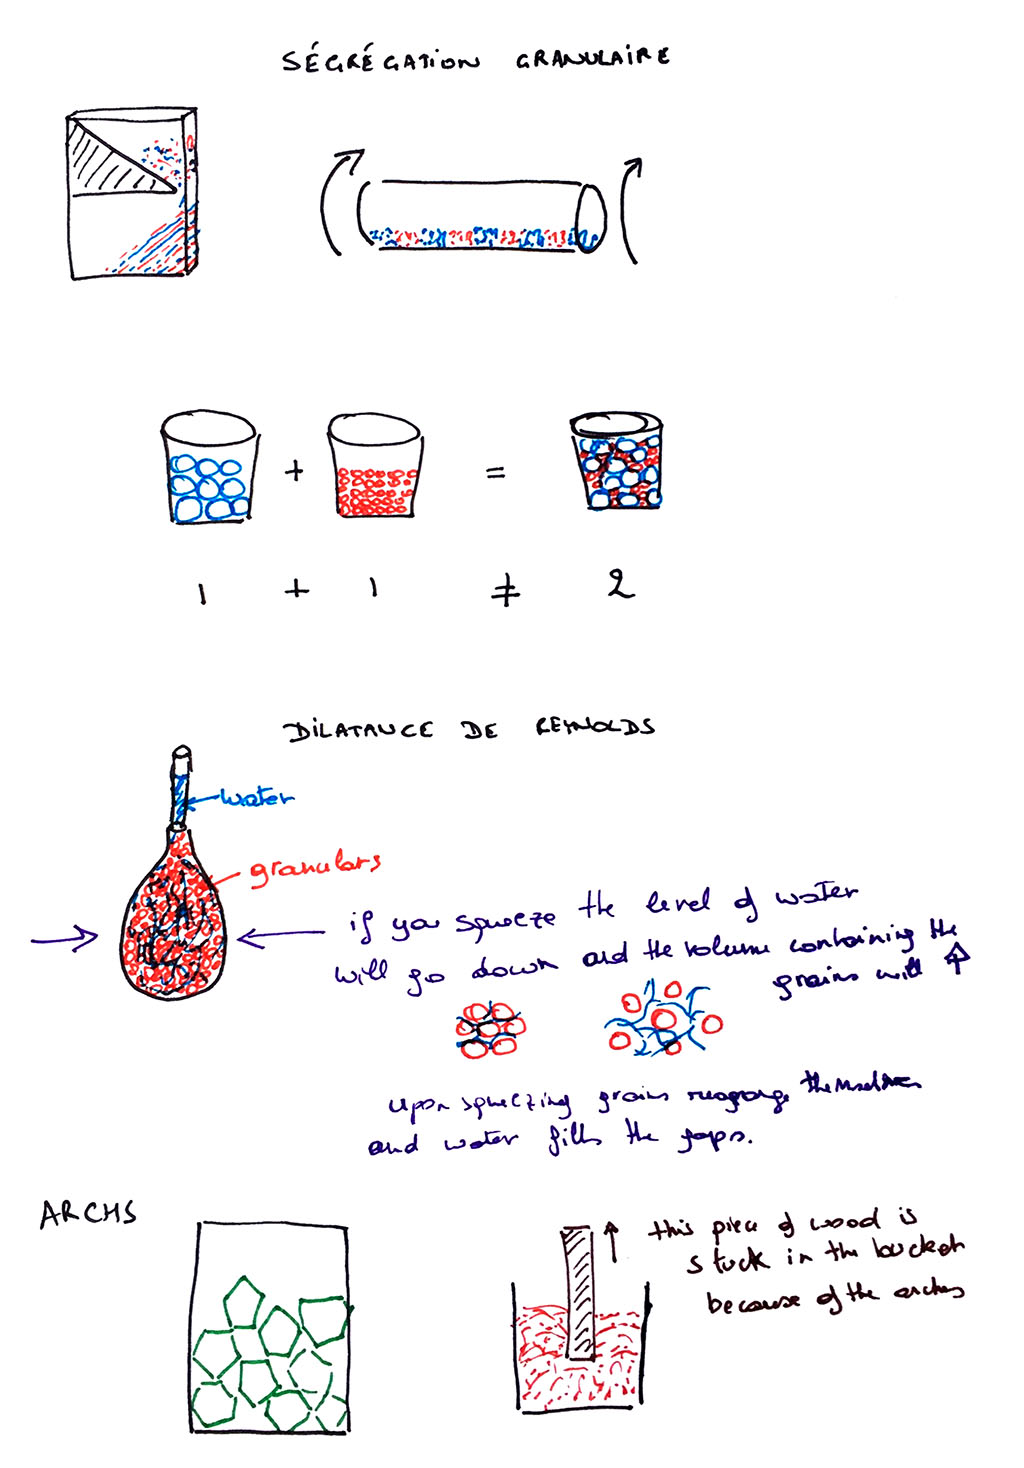 SÉGRÉGATION GRANULAIRE
+ =
1 + 1 ≠ 2
DILATANCE DE REYNOLDS
water
granulars
if you squeeze the level of water
will go down and the volume containing the
grains will ↑
upon squeezing grains themselves
and water fills the gaps.
ARCHS
this piece of wood is
stuck in the bucket
because of the arches